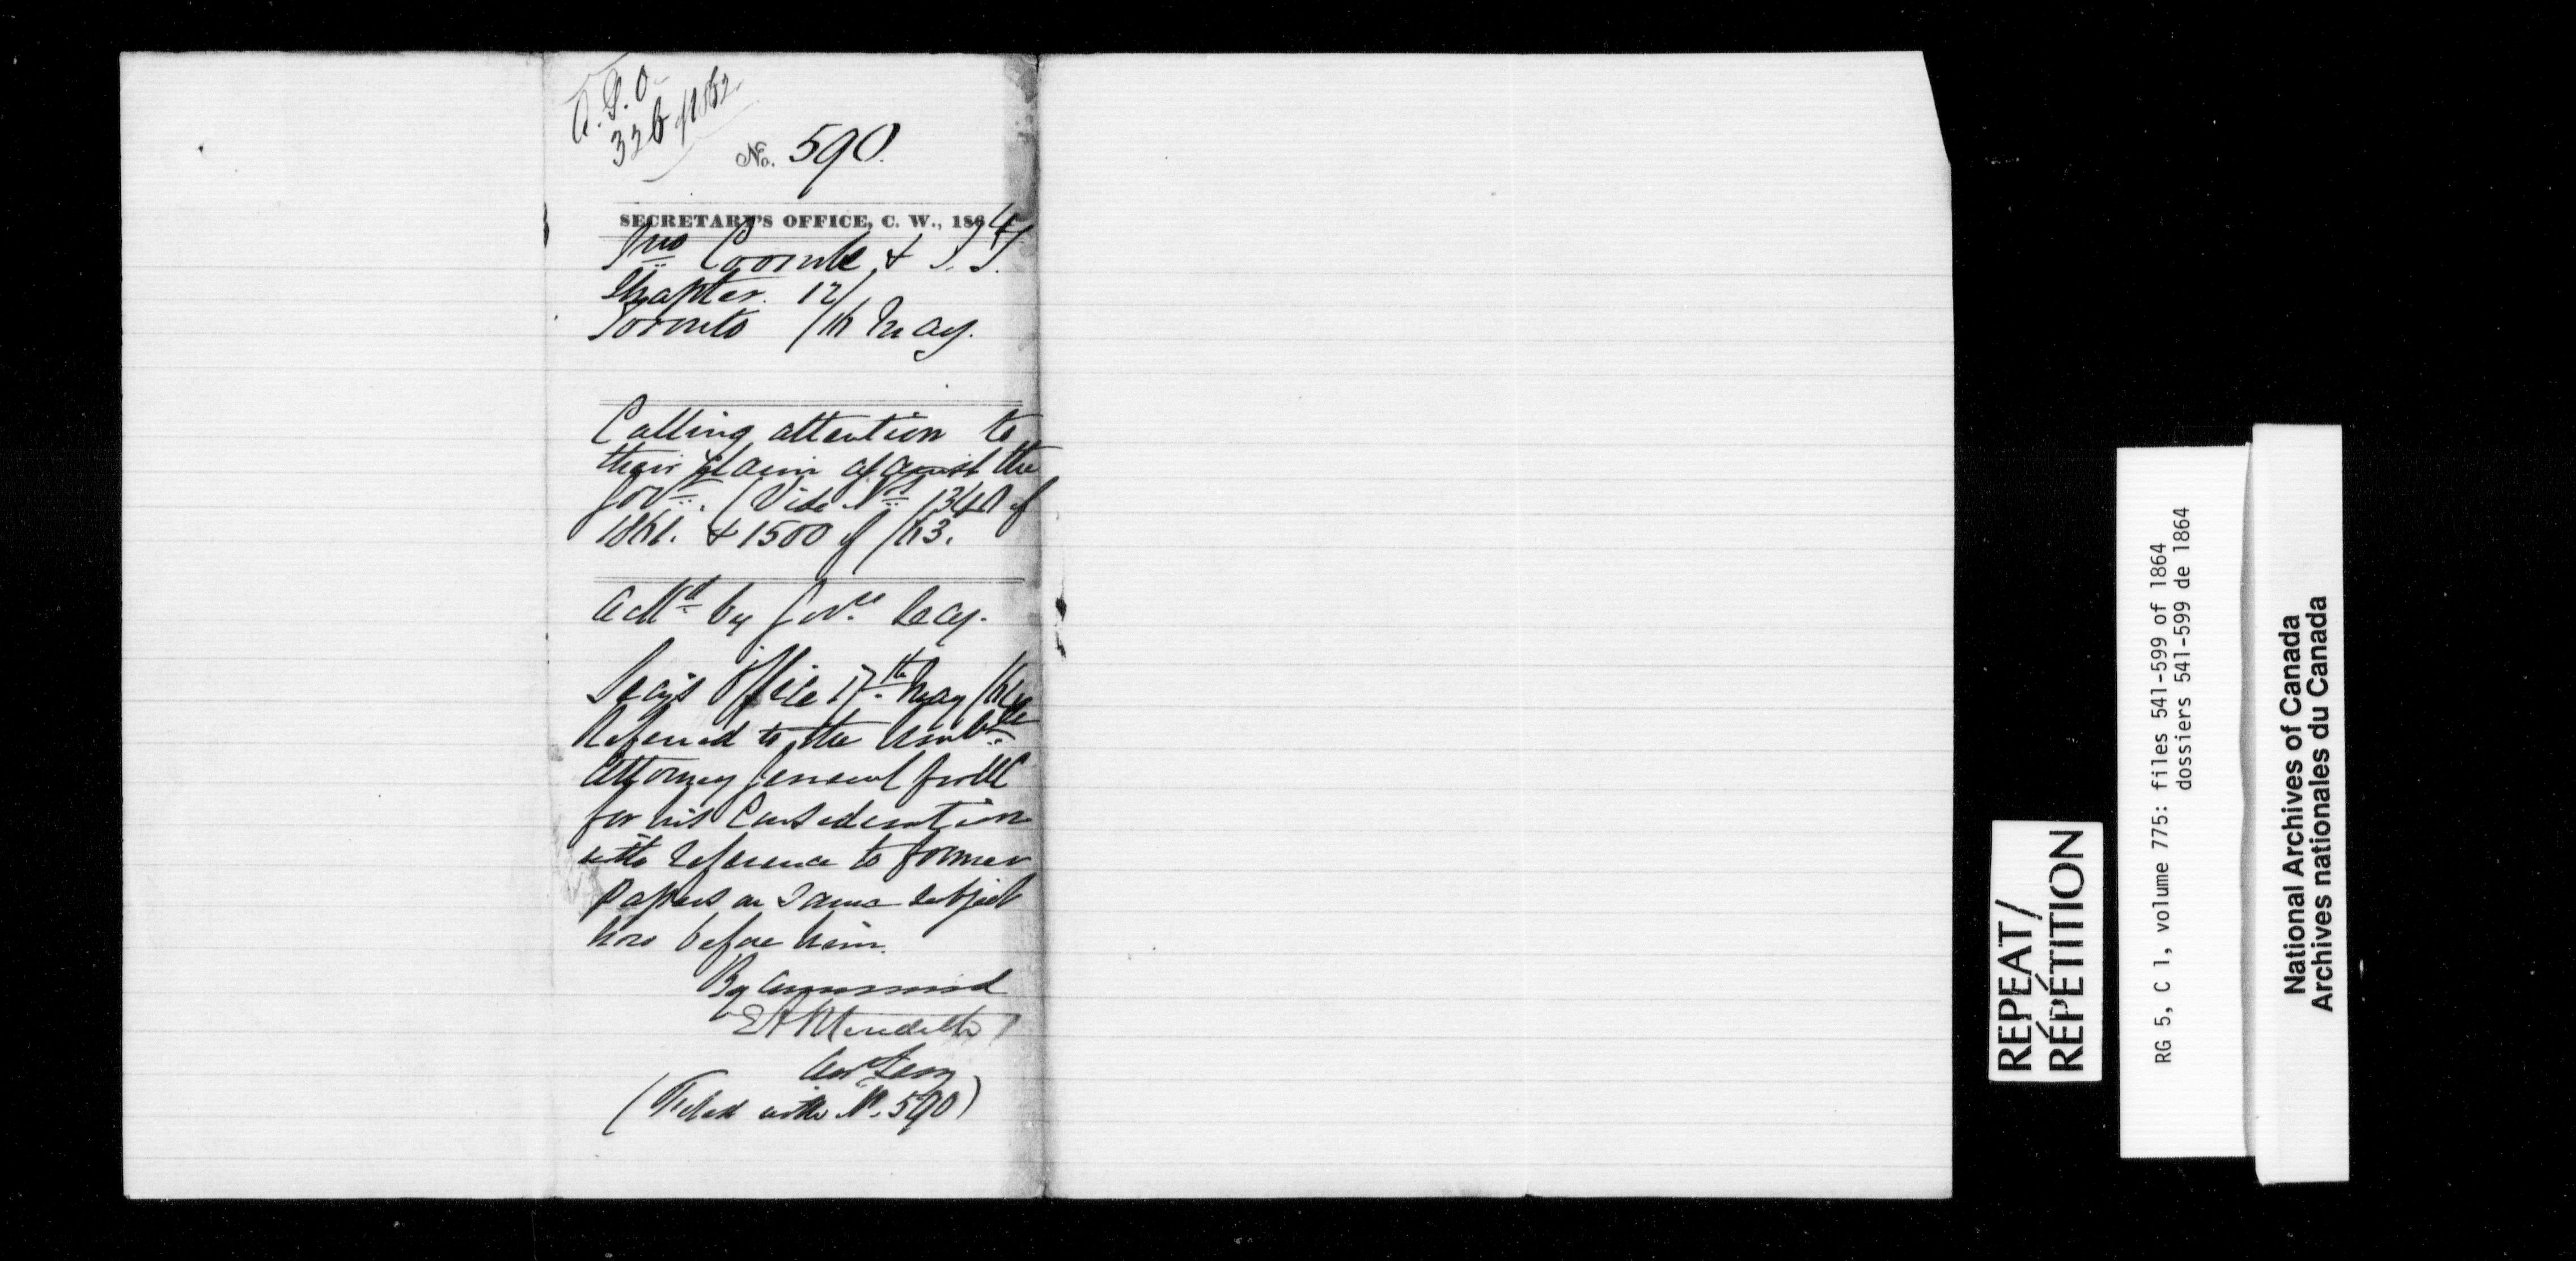 A.G.O.
326 of 1862
No. 590.
SECRETARY'S OFFICE, C. W., 1864
Jno Coombe & T. T.
Shapter. 12/
Toronto /th May.
Calling attention to
their claim against the
Govt. (Vide Nos 1340 of
1861. & 1500 of /63.
Ackd by Govrs Secy.
Secy's Office 17th May /64
Referred to the Honble
Attorney General for UC
for his Consideration
with reference to former
papers on same subject
now before him.
By Command
E A Meredith
Asst Secy
(Filed with No. 590)
REPEAT/
RÉPÉTITION
RG 5, C 1, volume 775: files 541-599 of 1864
dossiers 541-599 de 1864
National Archives of Canada
Archives nationales du Canada